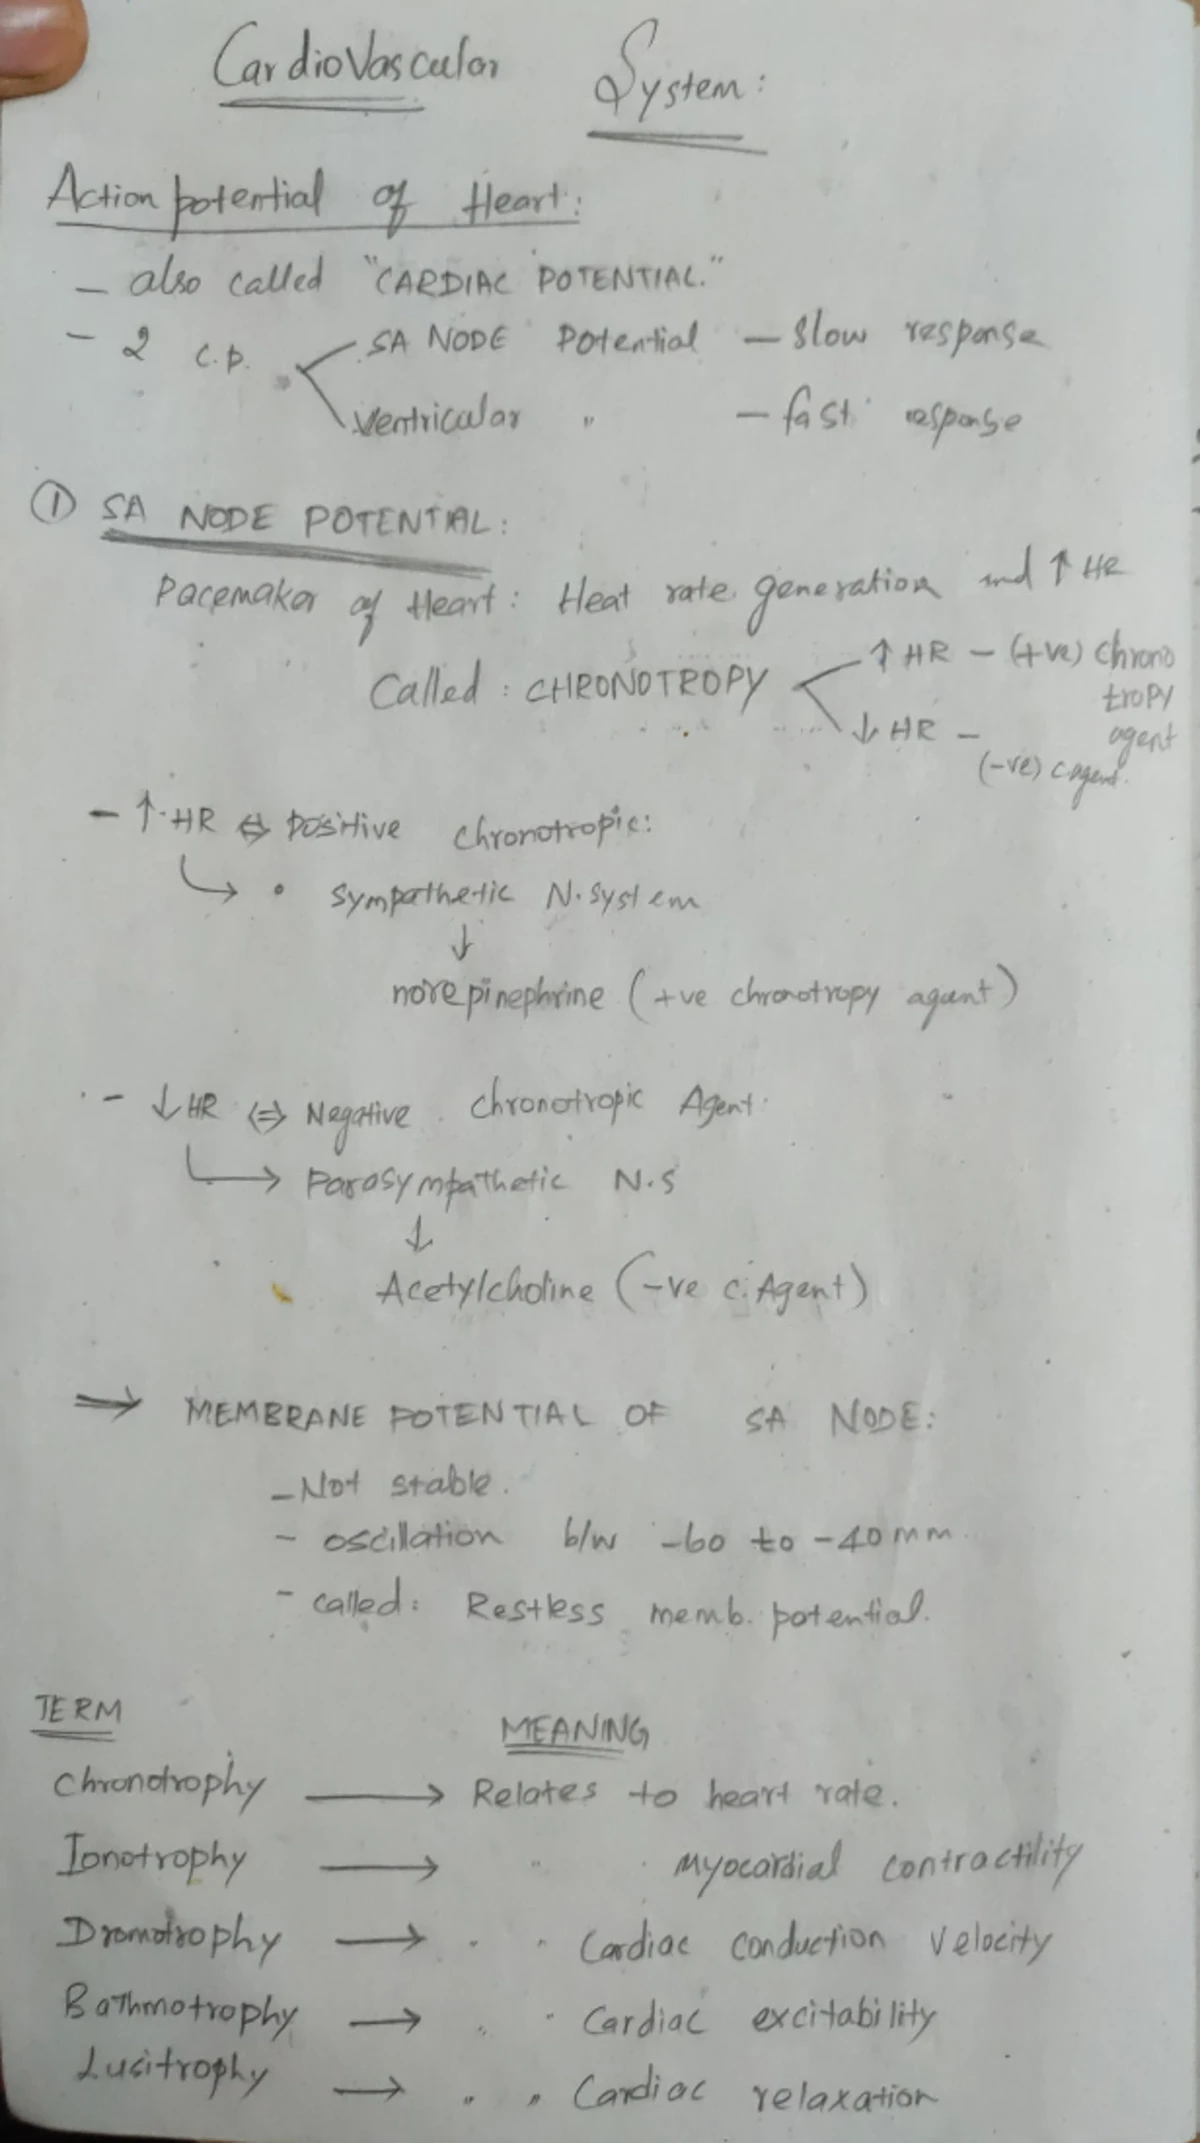 CardioVascular System:
Action potential of Heart:
- also called "CARDIAC POTENTIAL."
- 2 C.P. SA NODE Potential - Slow response
Ventricular " - fast response
① SA NODE POTENTIAL:
Pacemaker of Heart: Heat rate generation and ↑ HR
Called: CHRONOTROPY ↑ HR - (+ve) Chrono
tropy
↓ HR - agent
(-ve) c.agent.
- ↑ HR ⇔ Positive chronotropic:
↳ • Sympathetic N.System
↓
norepinephrine (+ve chronotropy agent)
- ↓ HR ⇔ Negative chronotropic Agent
↳ Parasympathetic N.S
↓
Acetylcholine (-ve c.Agent)
⇒ MEMBRANE POTENTIAL OF SA NODE:
- Not stable.
- oscillation b/w -60 to -40 mm
- called: Restless memb. potential.
TERM MEANING
Chronotrophy → Relates to heart rate.
Ionotrophy → " " myocardial contractility
Dromotrophy → " " Cardiac conduction velocity
Bathmotrophy → " " Cardiac excitability
Lusitrophy → " " Cardiac relaxation